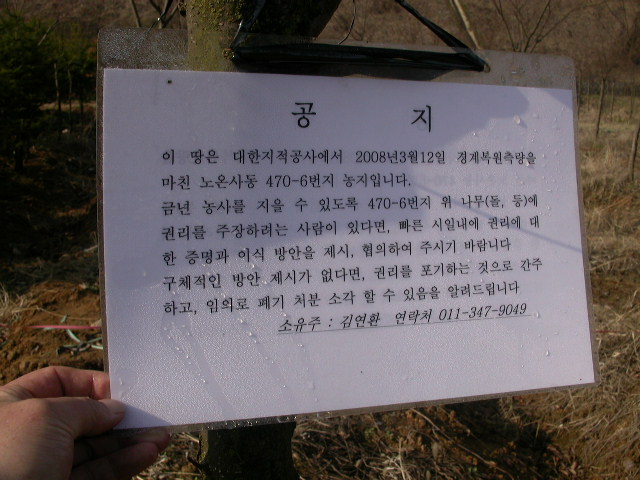 공 지
이 땅은 대한지적공사에서 2008년3월12일 경계복원측량을
마친 노온사동 470-6번지 농지입니다.
금년 농사를 지을 수 있도록 470-6번지 위 나무(돌, 등)에
권리를 주장하려는 사람이 있다면, 빠른 시일내에 권리에 대
한 증명과 이식 방안을 제시, 협의하여 주시기 바랍니다
구체적인 방안 제시가 없다면, 권리를 포기하는 것으로 간주
하고, 임의로 폐기 처분 소각 할 수 있음을 알려드립니다
소유주 : 김연환 연락처 011-347-9049